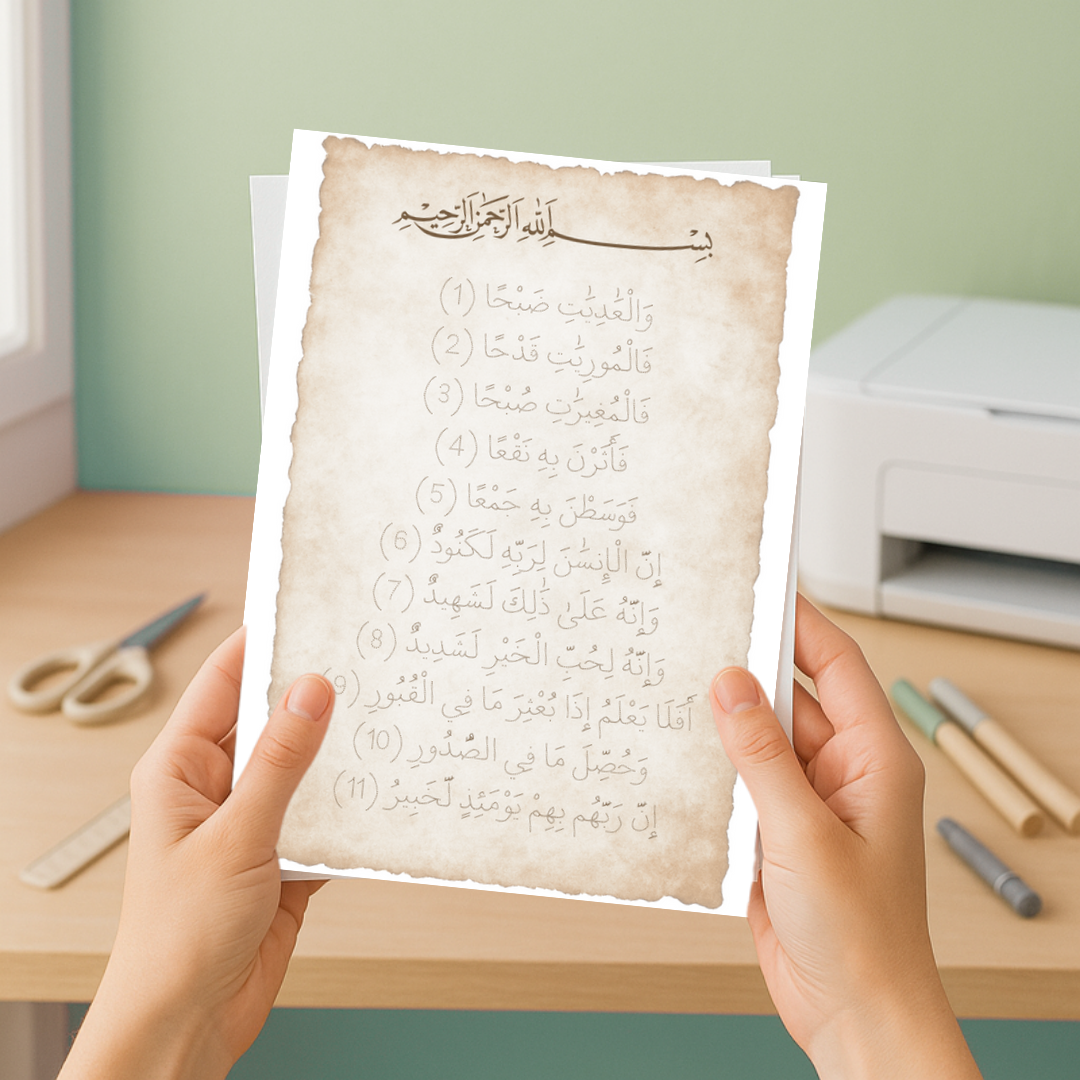 بِسْمِ اللَّهِ الرَّحْمَٰنِ الرَّحِيمِ
وَالْعَٰدِيَٰتِ ضَبْحًا (1)
فَالْمُورِيَٰتِ قَدْحًا (2)
فَالْمُغِيرَٰتِ صُبْحًا (3)
فَأَثَرْنَ بِهِ نَقْعًا (4)
فَوَسَطْنَ بِهِ جَمْعًا (5)
إِنَّ الْإِنسَٰنَ لِرَبِّهِ لَكَنُودٌ (6)
وَإِنَّهُ عَلَىٰ ذَٰلِكَ لَشَهِيدٌ (7)
وَإِنَّهُ لِحُبِّ الْخَيْرِ لَشَدِيدٌ (8)
أَفَلَا يَعْلَمُ إِذَا بُعْثِرَ مَا فِي الْقُبُورِ (9)
وَحُصِّلَ مَا فِي الصُّدُورِ (10)
إِنَّ رَبَّهُم بِهِمْ يَوْمَئِذٍ لَّخَبِيرُ (11)